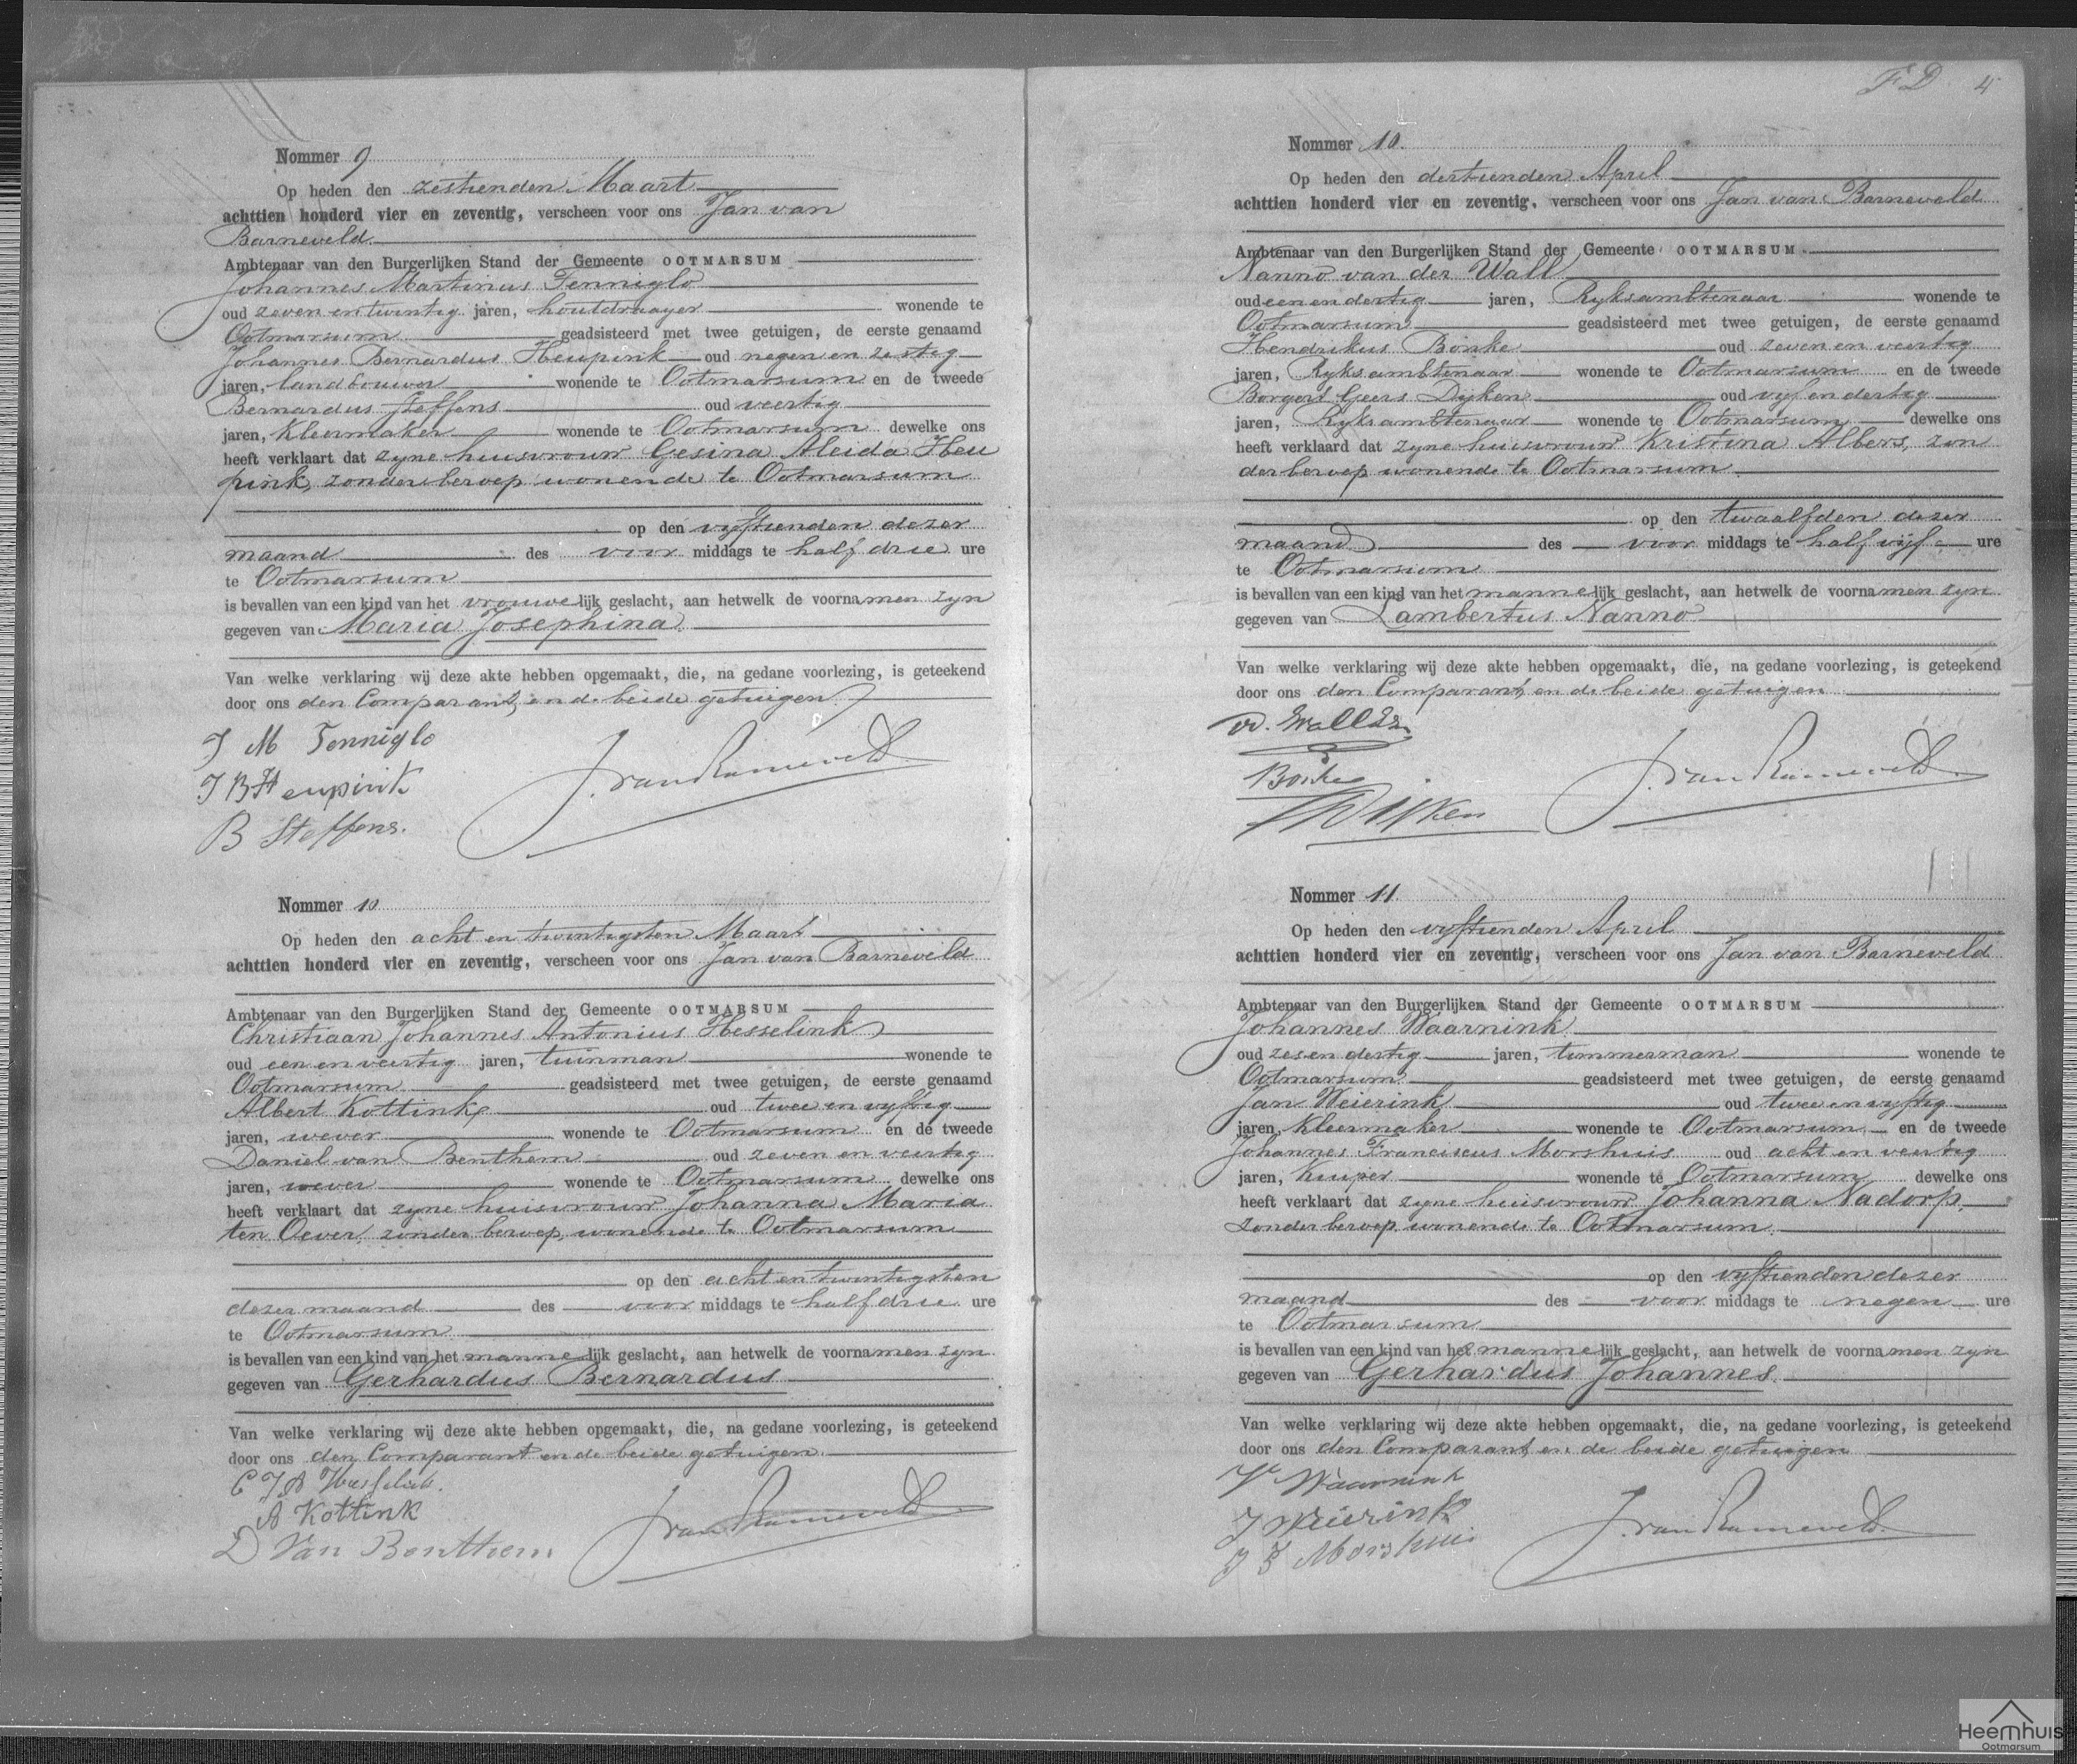 Nommer 9
Op heden den zestienden Maart
achttien honderd vier en zeventig, verscheen voor ons Jan van
Barneveld
Ambtenaar van den Burgerlijken Stand der Gemeente OOTMARSUM
Johannes Martinus Tenniglo
oud zeven en twintig jaren, houtdraayer wonende te
Ootmarsum geadsisteerd met twee getuigen, de eerste genaamd
Johannes Bernardus Heupink oud negen en zestig
jaren, landbouwer wonende te Ootmarsum en de tweede
Bernardus Steffens oud veertig
jaren, Kleermaker wonende te Ootmarsum dewelke ons
heeft verklaart dat zyne huisvrouw Gesina Aleida Heu
pink, zonder beroep wonende te Ootmarsum
op den vyftienden dezer
maand des voor middags te half drie ure
te Ootmarsum
is bevallen van een kind van het vrouwelijk geslacht, aan hetwelk de voornamen zyn
gegeven van Maria Josephina
Van welke verklaring wij deze akte hebben opgemaakt, die, na gedane voorlezing, is geteekend
door ons den Comparant, en de beide getuigen
J M Tenniglo
J B Heupink
B Steffens.
J. van Barneveld
Nommer 10
Op heden den acht en twintigsten Maart
achttien honderd vier en zeventig, verscheen voor ons Jan van Barneveld
Ambtenaar van den Burgerlijken Stand der Gemeente OOTMARSUM
Christiaan Johannes Antonius Hesselink
oud een en veertig jaren, tuinman wonende te
Ootmarsum geadsisteerd met twee getuigen, de eerste genaamd
Albert Kottink oud twee en vyftig
jaren, wever wonende te Ootmarsum en de tweede
Daniel van Benthem oud zeven en veertig
jaren, wever wonende te Ootmarsum dewelke ons
heeft verklaart dat zyne huisvrouw Johanna Maria
ten Oever, zonder beroep, wonende te Ootmarsum
op den acht en twintigsten
dezer maand des voor middags te half drie ure
te Ootmarsum
is bevallen van een kind van het mannelijk geslacht, aan hetwelk de voornamen zyn
gegeven van Gerhardus Bernardus
Van welke verklaring wij deze akte hebben opgemaakt, die, na gedane voorlezing, is geteekend
door ons den Comparant en de beide getuigen.
C J A Hesselink.
A Kottink
D Van Benthem
J van Barneveld
F D 4
Nommer 10.
Op heden den dertienden April
achttien honderd vier en zeventig, verscheen voor ons Jan van Barneveld
Ambtenaar van den Burgerlijken Stand der Gemeente OOTMARSUM
Nanno van der Wall
oud een en dertig jaren, Ryksambtenaar wonende te
Ootmarsum geadsisteerd met twee getuigen, de eerste genaamd
Hendrikus Bonke oud zeven en veertig
jaren, Ryksambtenaar wonende te Ootmarsum en de tweede
Borgert Geers Dijken oud vyf en dertig
jaren, Ryksambtenaar wonende te Ootmarsum dewelke ons
heeft verklaard dat zyne huisvrouw Kristina Albers, zon
der beroep wonende te Ootmarsum
op den twaalfden dezer
maand des voor middags te half vijf ure
te Ootmarsum
is bevallen van een kind van het mannelijk geslacht, aan hetwelk de voornamen zyn
gegeven van Lambertus Nanno
Van welke verklaring wij deze akte hebben opgemaakt, die, na gedane voorlezing, is geteekend
door ons den Comparant, en de beide getuigen
Bonke
Dijken
J. van Barneveld
Nommer 11
Op heden den vyftienden April
achttien honderd vier en zeventig, verscheen voor ons Jan van Barneveld
Ambtenaar van den Burgerlijken Stand der Gemeente OOTMARSUM
Johannes Waarnink
oud zes en dertig jaren, timmerman wonende te
Ootmarsum geadsisteerd met twee getuigen, de eerste genaamd
Jan Weierink oud twee en vyftig
jaren, Kleermaker wonende te Ootmarsum en de tweede
Johannes Franciscus Morshuis oud acht en veertig
jaren, Kuiper wonende te Ootmarsum dewelke ons
heeft verklaart dat zyne huisvrouw Johanna Nadorp,
zonder beroep wonende te Ootmarsum
op den vyftienden dezer
maand des voor middags te negen ure
te Ootmarsum
is bevallen van een kind van het mannelijk geslacht, aan hetwelk de voornamen zyn
gegeven van Gerhardus Johannes.
Van welke verklaring wij deze akte hebben opgemaakt, die, na gedane voorlezing, is geteekend
door ons den Comparant, en de beide getuigen
Waarnink
J Weierink
J F Morshuis
J. van Barneveld
Heemhuis
Ootmarsum